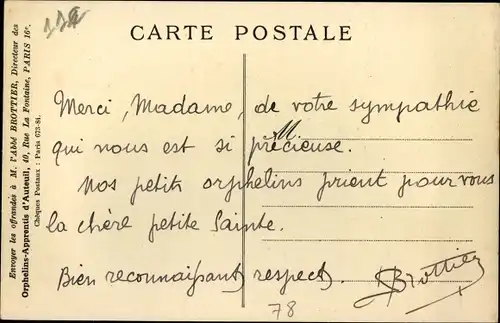 CARTE POSTALE
Envoyer les offrandes à M. l'Abbé BROTTIER, Directeur des
Orphelins-Apprentis d'Auteuil, 40, Rue La Fontaine, PARIS 16e.
Chèques Postaux : Paris 673-84.
Merci, Madame, de votre sympathie
qui nous est si précieuse.
M
Nos petits orphelins prient pour vous
la chère petite Sainte.
Bien reconnaissant respect.
Brottier
78